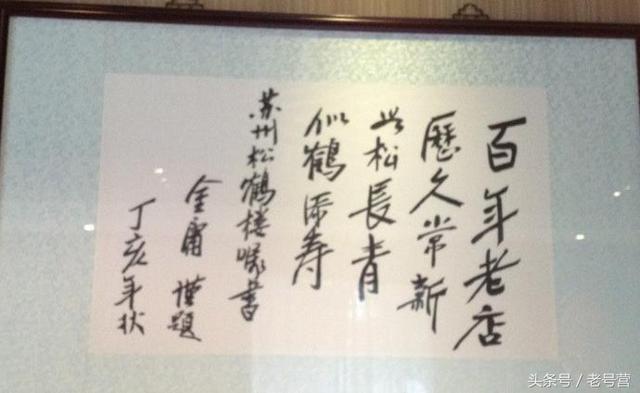 百年老店
歷久常新
松長青
似鶴添寿
苏州松鶴楼嘱書
金庸 謹題
丁亥年秋
头条号 / 老号营